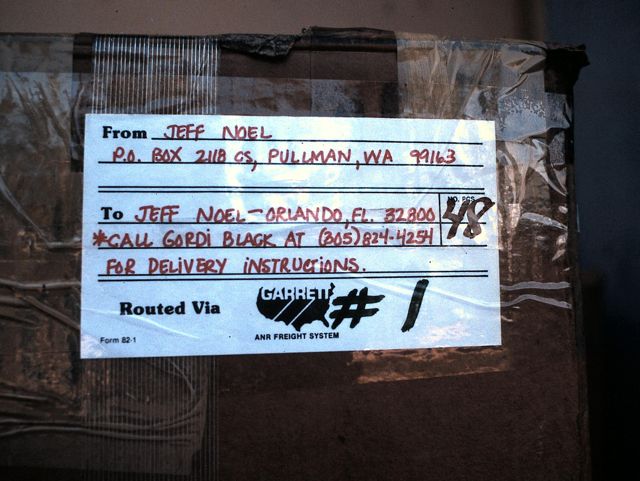 From JEFF NOEL
P.O. BOX 2118 CS, PULLMAN, WA 99163
To JEFF NOEL-ORLANDO, FL. 32800
NO. PCS.
48
*CALL GORDI BLACK AT (305) 824-4254
FOR DELIVERY INSTRUCTIONS.
Routed Via GARRETT # 1
ANR FREIGHT SYSTEM
Form 82-1